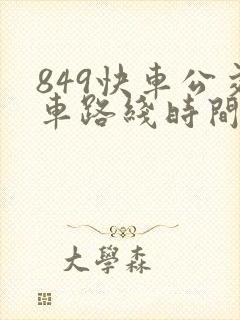 849快車公交
車路綫時間
大學森